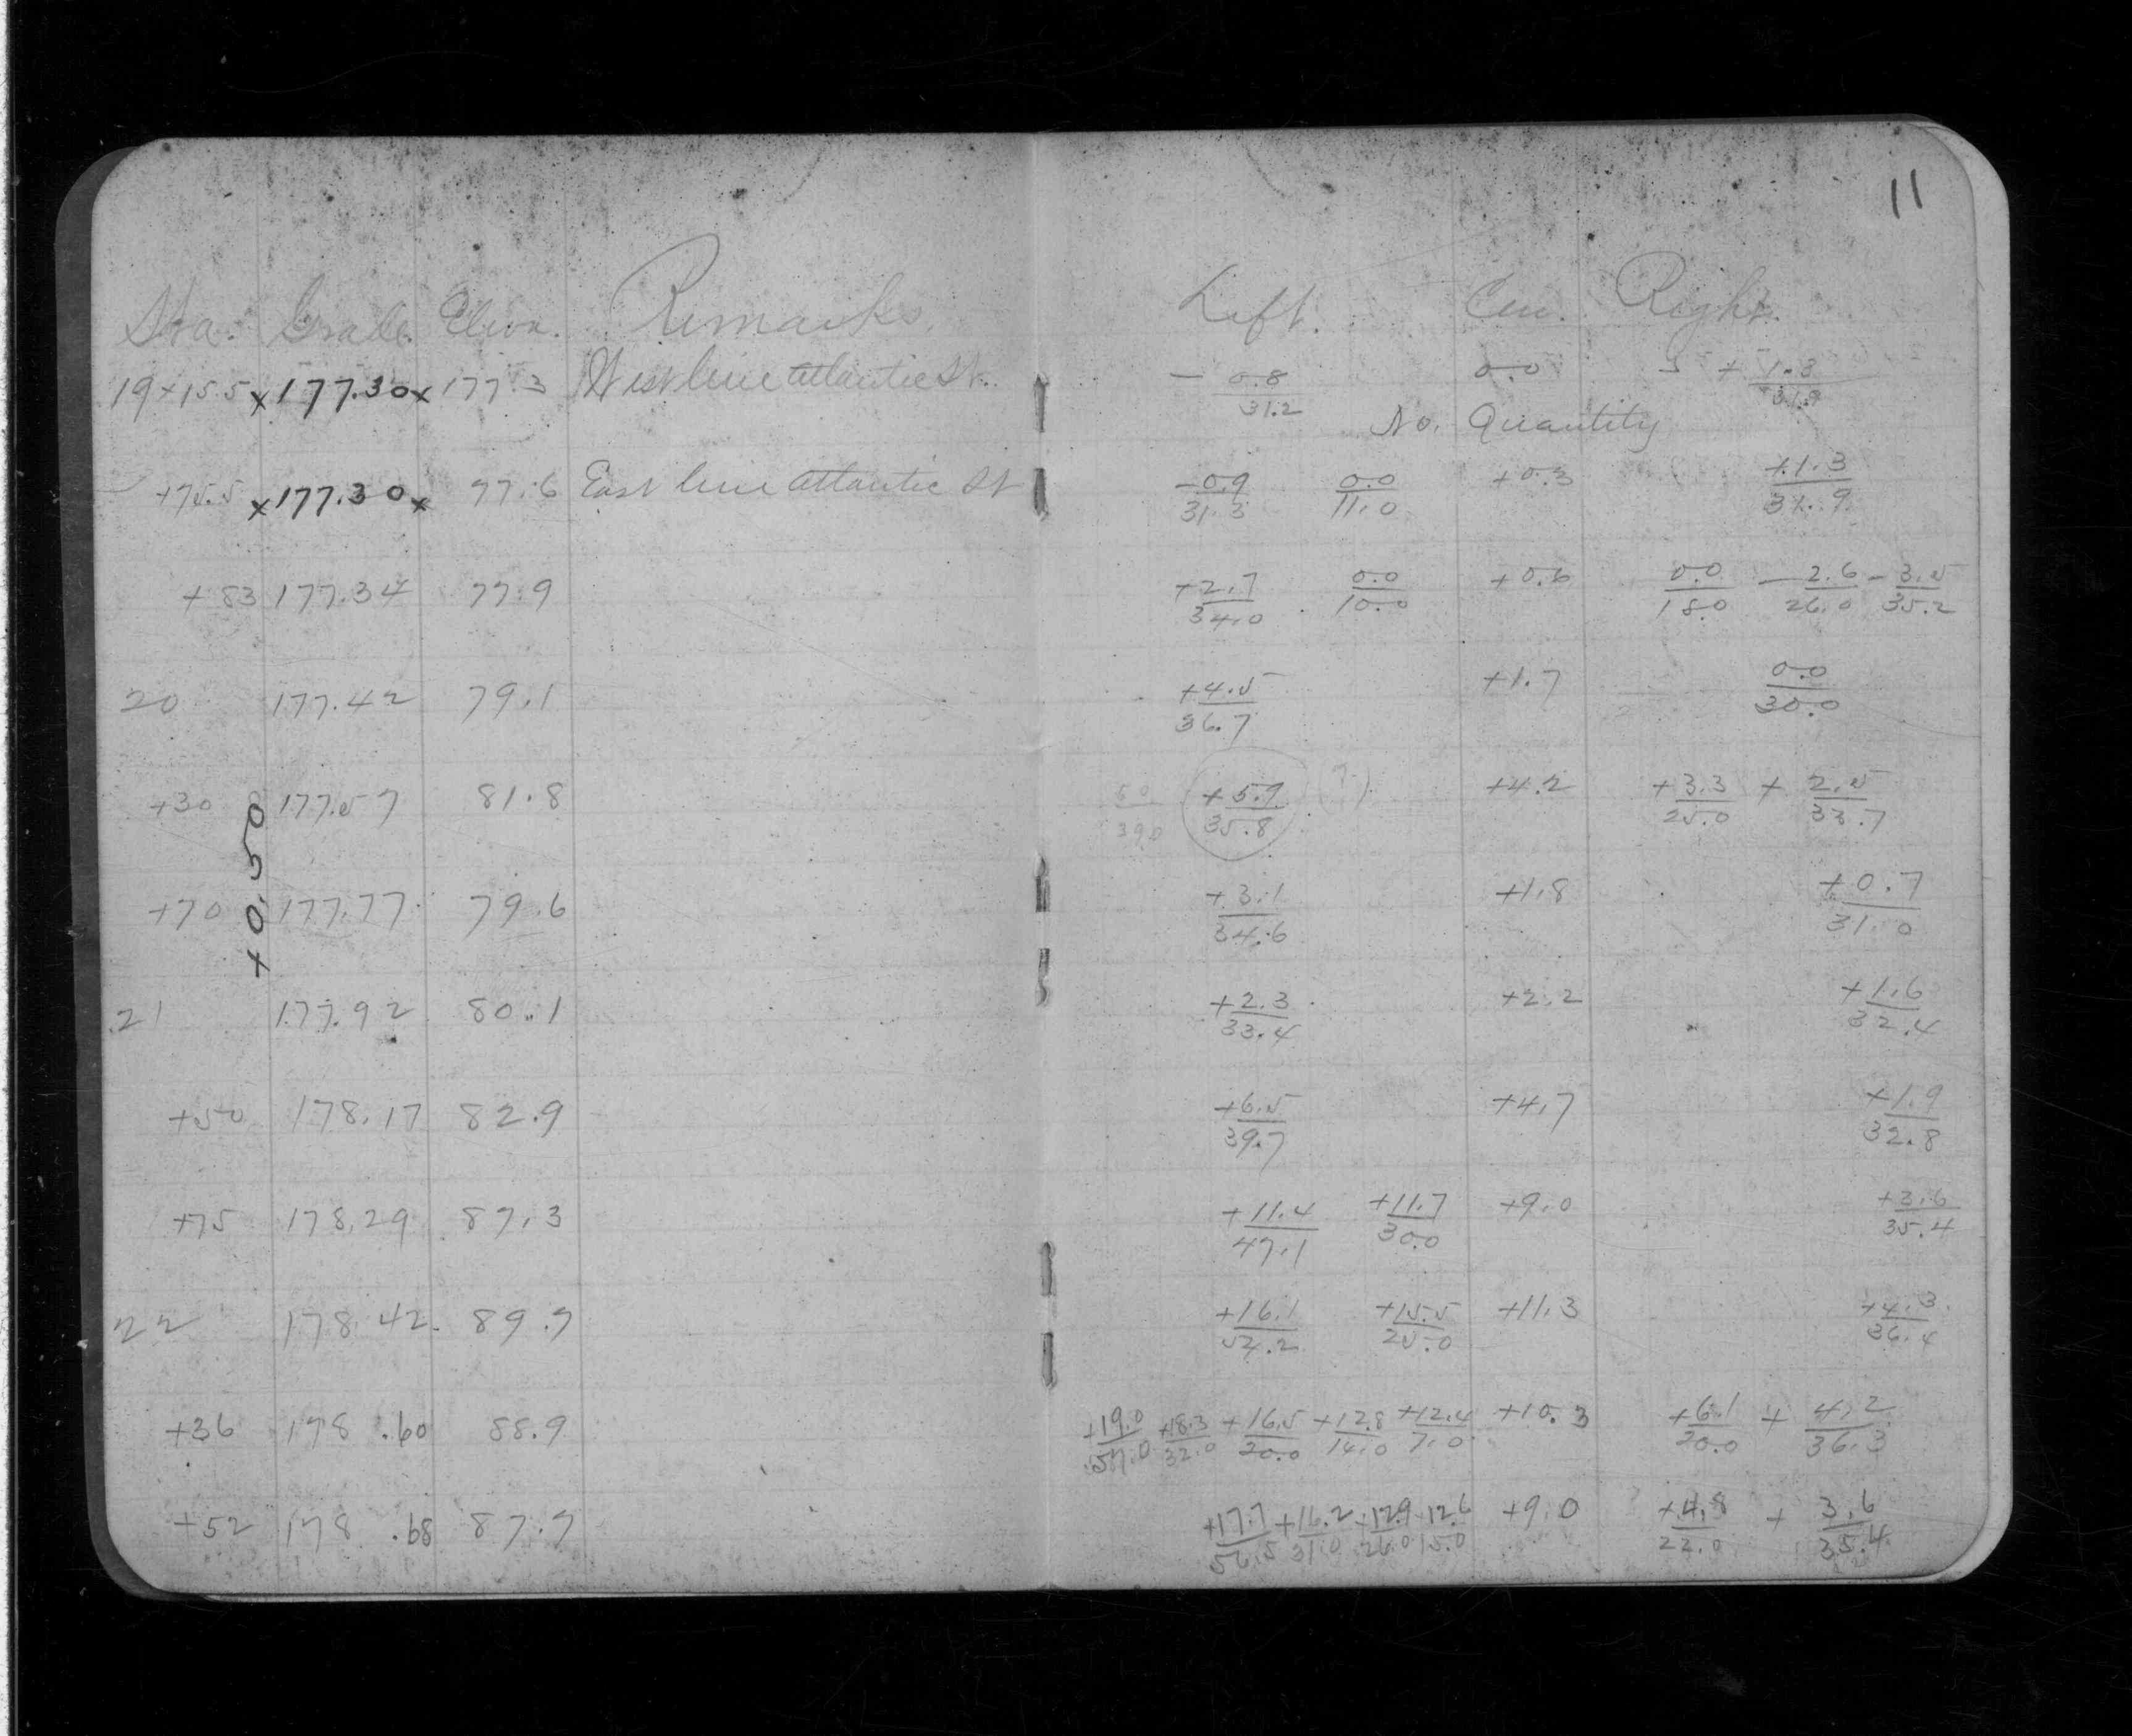 11
Sta. Grade. Elev. Remarks. Left. Cen. Right.
19+15.5 x 177.30 x 177.3 West line Atlantic St. - 0.8/31.2 0.0 + 1.3/31.9
No. Quantity
+75.5 x 177.30 x 77.6 East line Atlantic St -0.9/31.3 0.0/11.0 +0.3 +1.3/31.9
+83 177.34 77.9 +2.7/34.0 0.0/10.0 +0.6 0.0/18.0 -2.6/26.0 -3.5/35.2
20 177.42 79.1 +4.5/36.7 +1.7 0.0/30.0
+30 177.57 81.8 +5.9/35.8 (?) +4.2 +3.3/25.0 + 2.5/33.7
+0.50
+70 177.77 79.6 +3.1/34.6 +1.8 +0.7/31.0
21 177.92 80.1 +2.3/33.4 +2.2 +1.6/32.4
+50 178.17 82.9 +6.5/39.7 +4.7 +1.9/32.8
+75 178.29 87.3 +11.4/47.1 +11.7/30.0 +9.0 +3.6/35.4
22 178.42 89.7 +16.1/54.2 +15.5/25.0 +11.3 +4.3/36.4
+36 178.60 88.9 +19.0/ +18.3/32.0 +16.5/20.0 +12.8/14.0 +12.4/7.0 +10.3 +6.1/20.0 + 4.2/36.3
+52 178.68 87.7 +17.7/56.5 +16.2/31.0 +12.9/26.0 +12.6/15.0 +9.0 +4.8/22.0 + 3.6/35.4